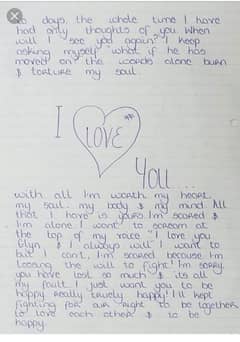 days, the whole time I have
had only thoughts of you. When
will I see you again? I keep
asking myself "what if he has
moved on" the words alone burn
& torture my soul.
I LOVE
You...
with all I'm worth my heart,
my soul, my body & my mind. All
that I have is yours. I'm scared &
I'm alone I want to scream at
the top of my voice "I love you
Glyn & I always will" I want to
but I can't, I'm scared because I'm
loosing the will to fight! I'm sorry
you have lost so much & its all
my fault. I just want you to be
happy really truely happy! I'll kept
fighting for our right to be together
to love each other & to be
happy.